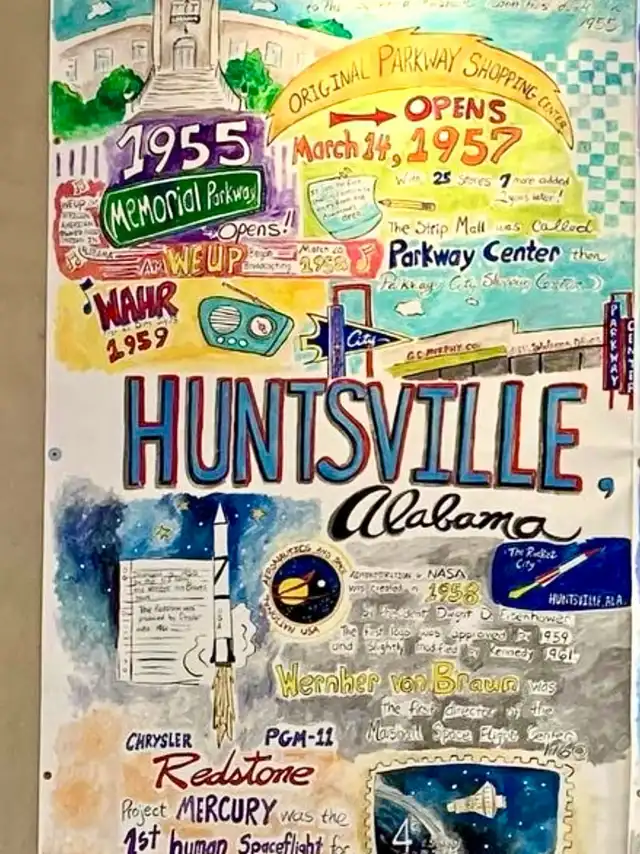 1955
ORIGINAL PARKWAY SHOPPING CENTER
OPENS
March 14, 1957
With 25 stores 7 more added
2 years later!
1955
Memorial Parkway
Opens!!
The Strip Mall was Called
Parkway Center then
Parkway City Shopping Center
AM WEUP Began Broadcasting March 20 1958
WAHR
1959
City
G.C. MURPHY CO.
PARKWAY
CENTER
HUNTSVILLE,
Alabama
NATIONAL AERONAUTICS AND SPACE
ADMINISTRATION or NASA
was created in 1958
by President Dwight D. Eisenhower
The first logo was approved in 1959
and slightly modified by Kennedy 1961
"The Rocket
City"
HUNTSVILLE, ALA.
The Redstone was
produced by Chrysler
Wernher von Braun was
the first director of the
Marshall Space Flight Center
1960
CHRYSLER PGM-11
Redstone
Project MERCURY was the
1st human Spaceflight for
4